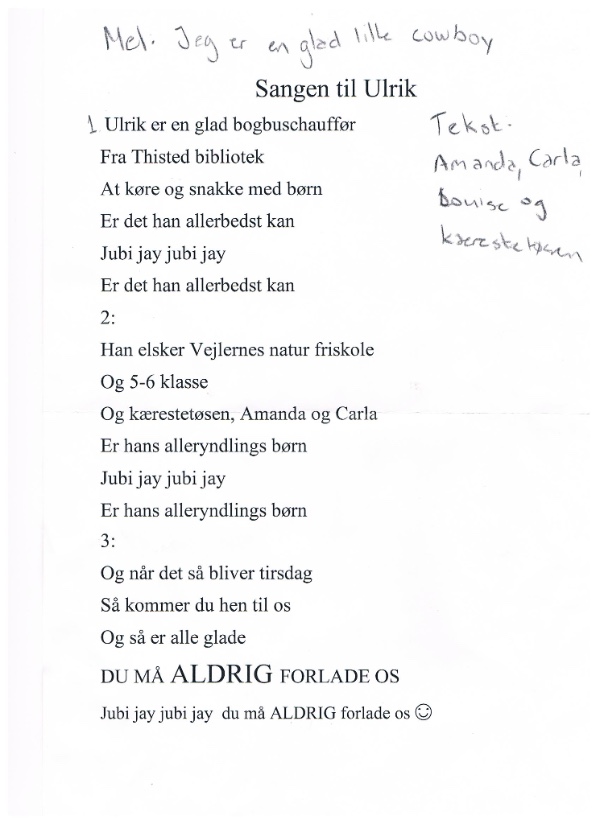 Mel. Jeg er en glad lille cowboy
Sangen til Ulrik
1 Ulrik er en glad bogbuschauffør
Fra Thisted bibliotek
At køre og snakke med børn
Er det han allerbedst kan
Jubi jay jubi jay
Er det han allerbedst kan
2:
Han elsker Vejlernes natur friskole
Og 5-6 klasse
Og kærestetøsen, Amanda og Carla
Er hans alleryndlings børn
Jubi jay jubi jay
Er hans alleryndlings børn
3:
Og når det så bliver tirsdag
Så kommer du hen til os
Og så er alle glade
DU MÅ ALDRIG FORLADE OS
Jubi jay jubi jay du må ALDRIG forlade os ☺
Tekst.
Amanda, Carla,
Louise og
kærestetøsen